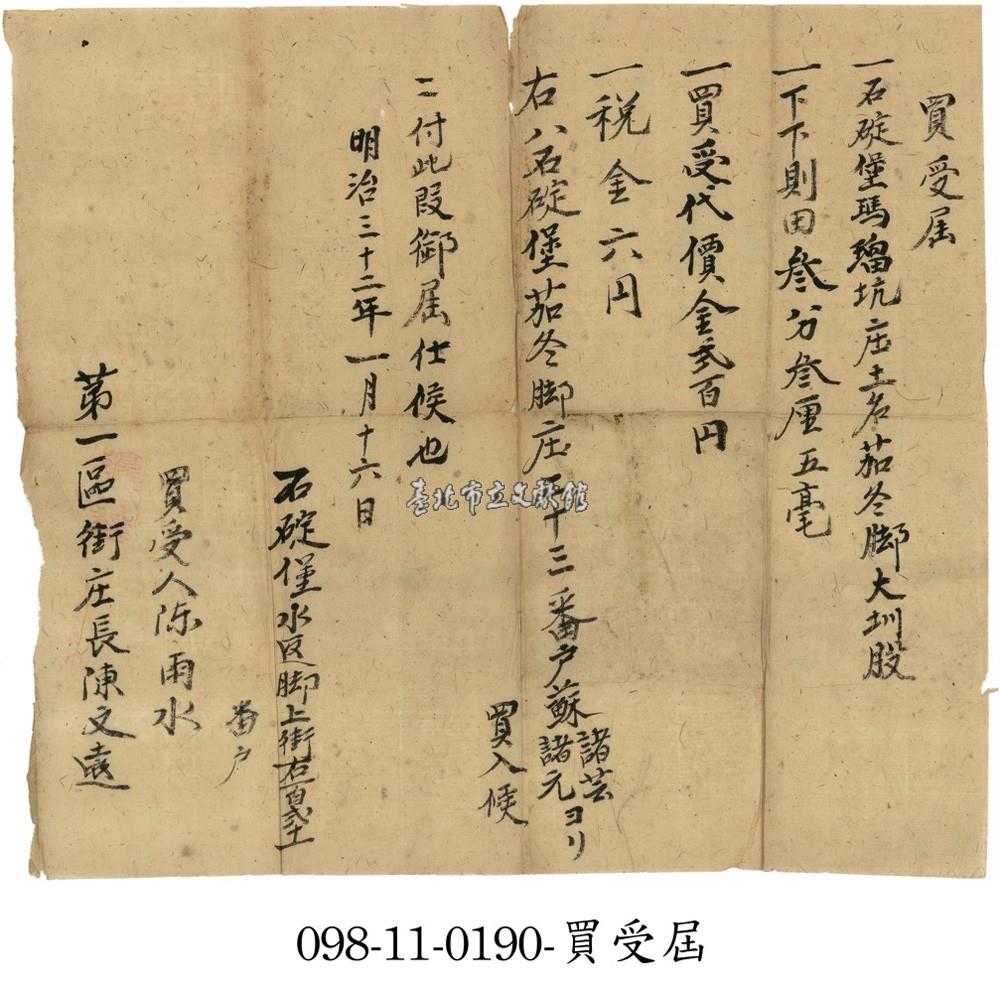 買受屆
一石碇堡瑪瑠坑庄土名茄冬脚大圳股
一下下則田叄分叄厘五毫
一買受代價金弍百円
一税金六円
右ハ石碇堡茄冬脚庄五十三番戶蘇諸芸諸元ヨリ
買入候
ニ付此段御届仕候也
明治三十二年一月十六日
石碇堡水返脚上街右百弍十
番戶
買受人陈雨水
苐一區街庄長陳文遠
臺北市立文獻館
098-11-0190-買受屆